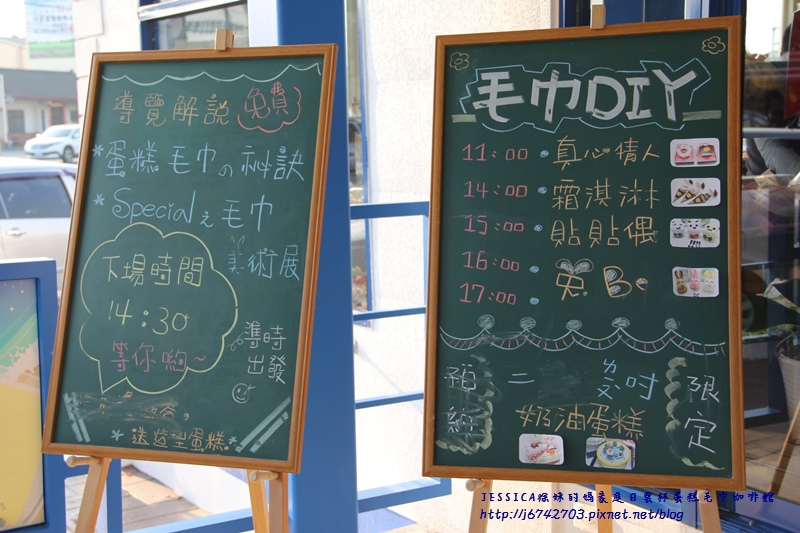 導覽解說 免費
*蛋糕毛巾の祕訣
*Special之毛巾
美術展
下場時間
14:30
等你喲~
準時
出發
送造型蛋糕
毛巾DIY
11:00 · 真心情人
14:00 · 霜淇淋
15:00 · 貼貼偶
16:00
17:00 · 兔 B.
預約
二ㄌㄡˇ吋
奶油蛋糕
限定
http://j6742703.pixnet.net/blog